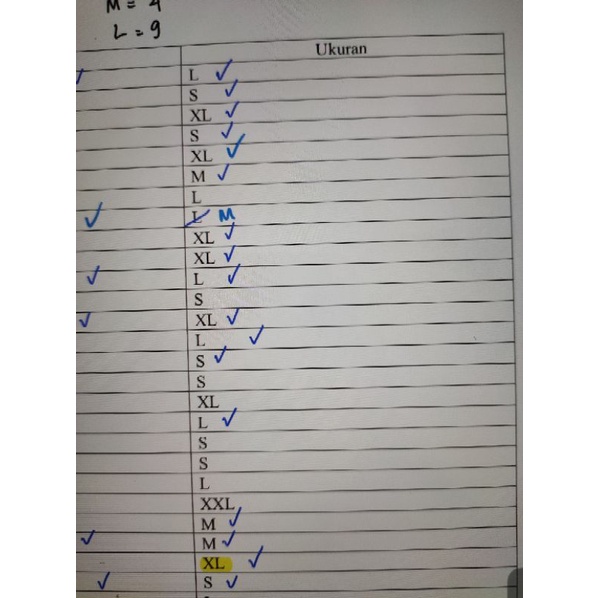 M = 4
L = 9
Ukuran
L ✓
S ✓
XL ✓
S ✓
XL ✓
M ✓
L
L M
XL ✓
XL ✓
L ✓
S
XL ✓
L ✓
S ✓
S
XL
L ✓
S
S
L
XXL
M ✓
M ✓
XL ✓
S ✓